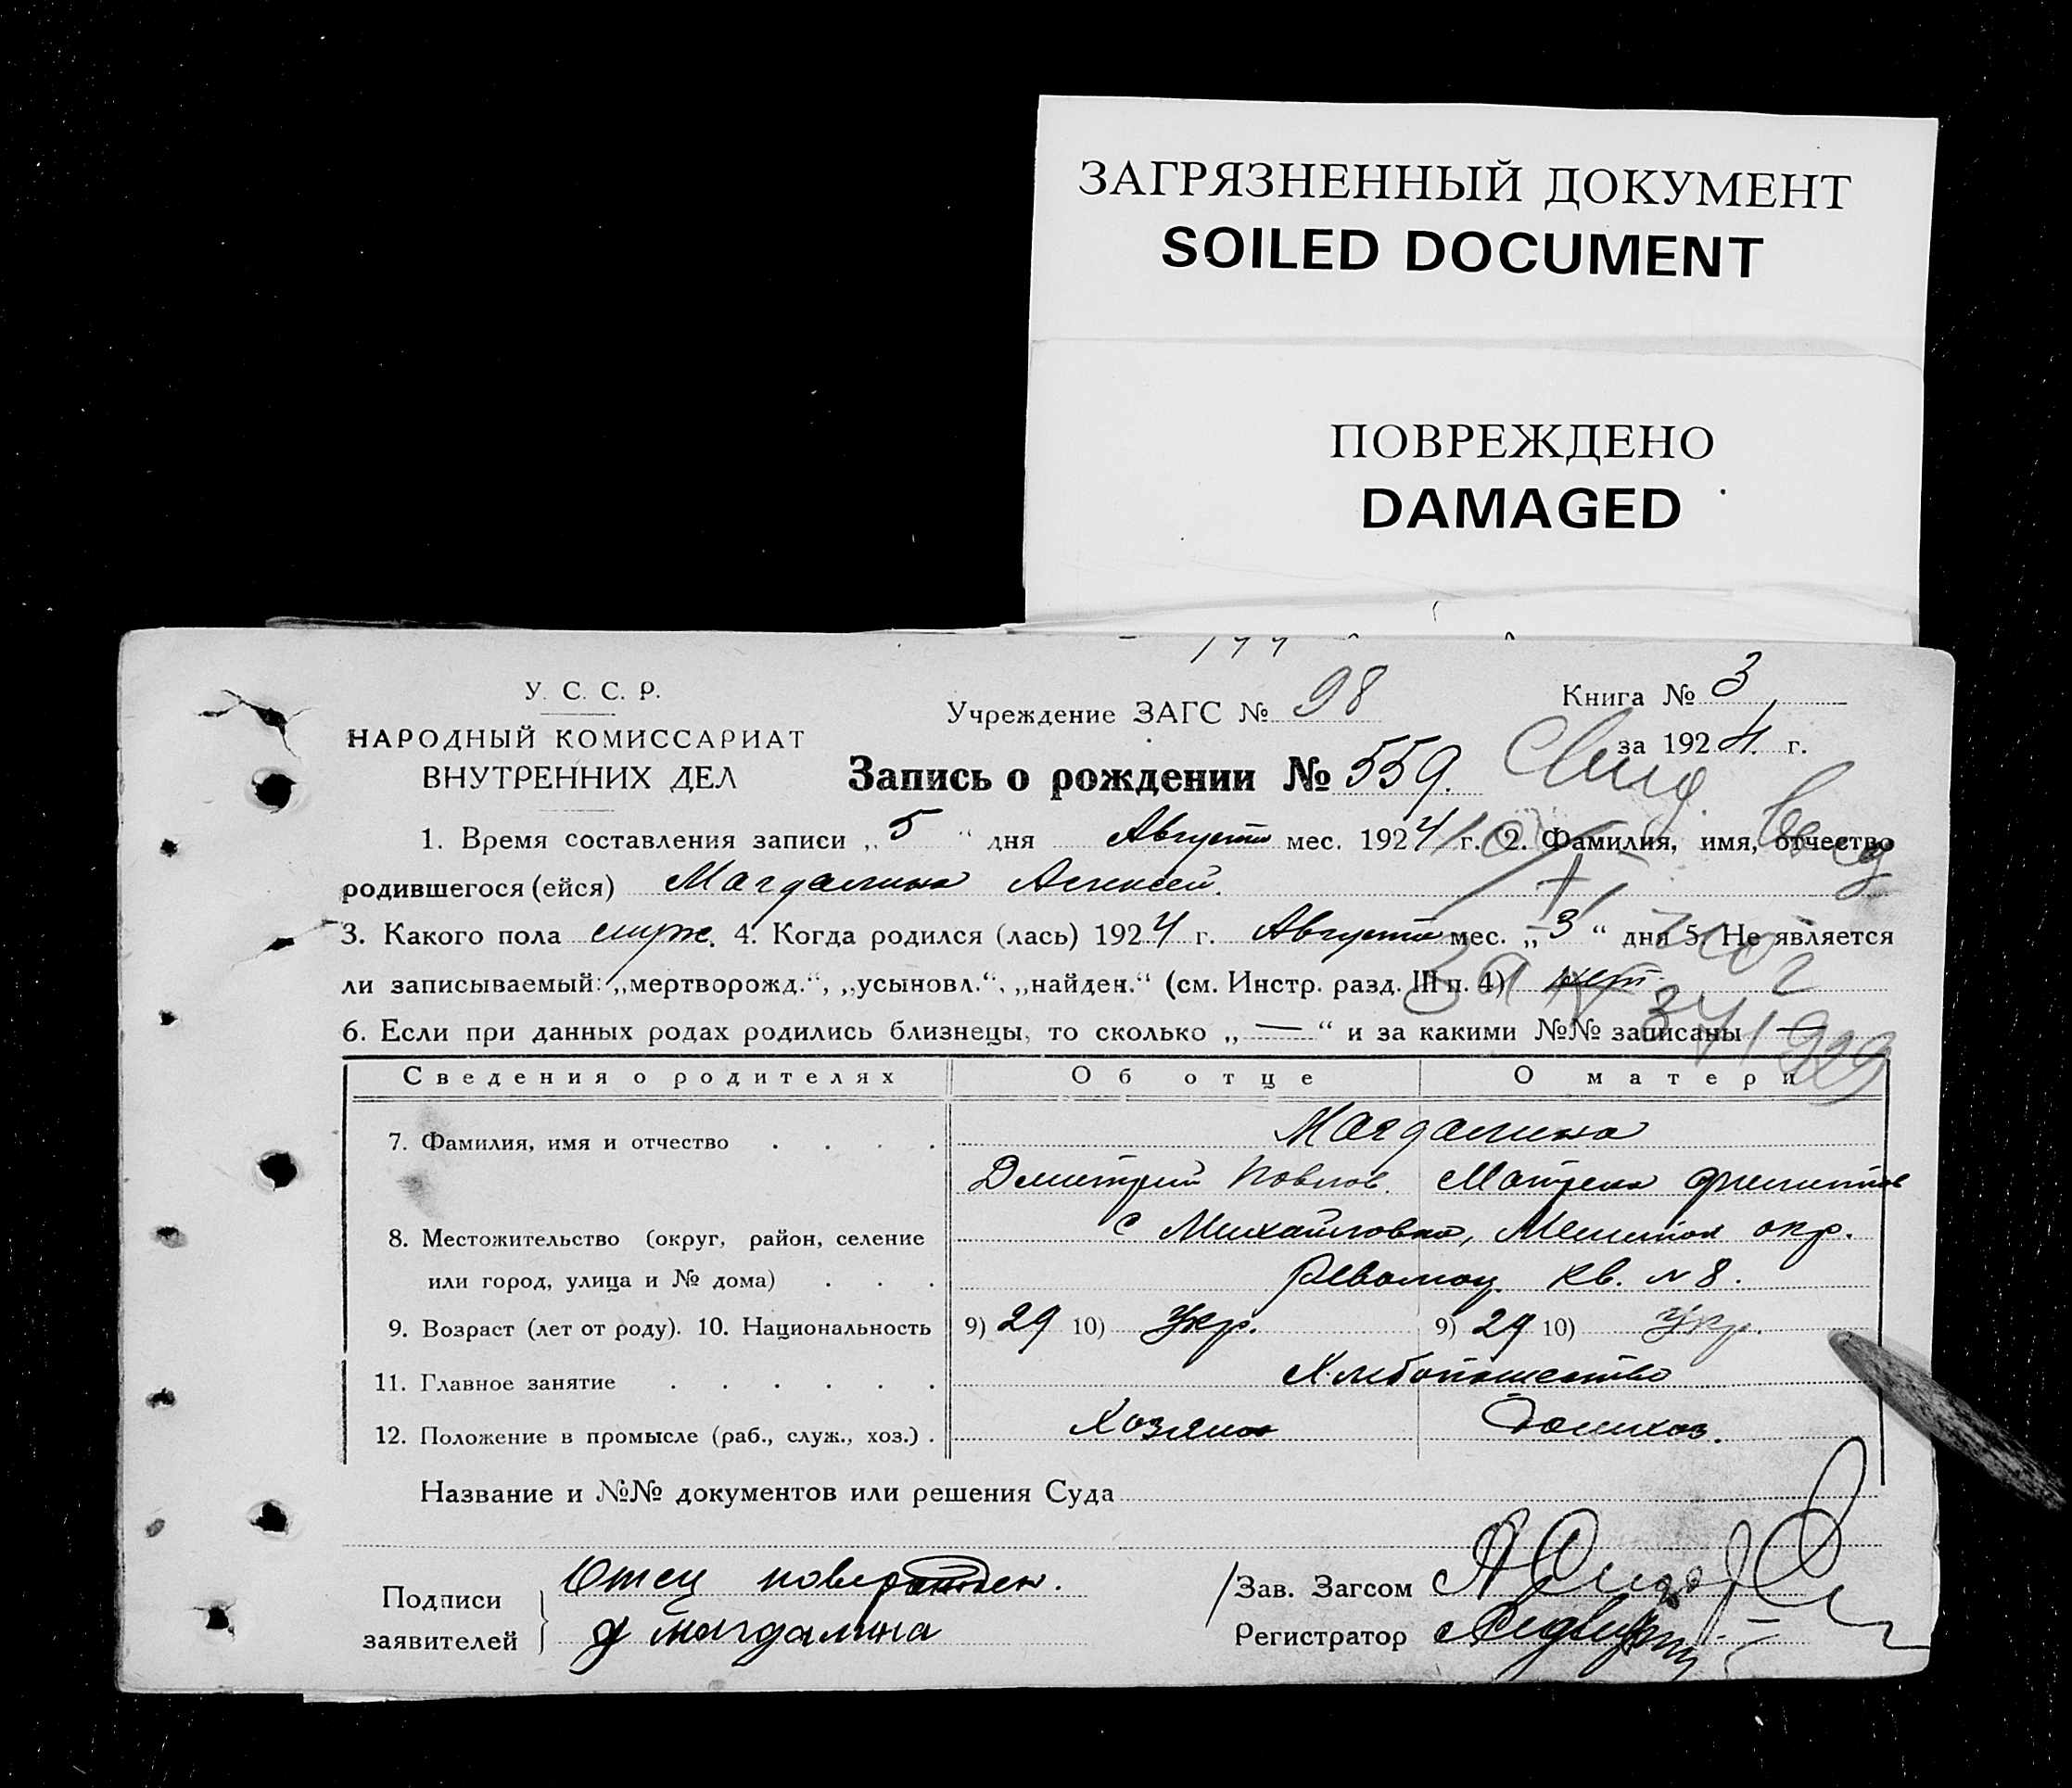 ЗАГРЯЗНЕННЫЙ ДОКУМЕНТ
SOILED DOCUMENT
ПОВРЕЖДЕНО
DAMAGED
У. С. С. Р.
НАРОДНЫЙ КОМИССАРИАТ
ВНУТРЕННИХ ДЕЛ
Учреждение ЗАГС № 98
Книга № 3
за 1924 г.
Запись о рождении № 559.
1. Время составления записи „5“ дня Августа мес. 1924 г. 2. Фамилия, имя, отчество
родившегося (ейся) Магдалина Алексей.
3. Какого пола муж. 4. Когда родился (лась) 1924 г. Августа мес. „3“ дня 5. Не является
ли записываемый: „мертворожд.“, „усыновл.“, „найден.“ (см. Инстр. разд. III п. 4) нет
6. Если при данных родах родились близнецы, то сколько „—“ и за какими №№ записаны —
Сведения о родителях Об отце О матери
7. Фамилия, имя и отчество . . . . Магдалина
Дмитрий Павлов. Матрена
8. Местожительство (округ, район, селение с Михайловка, Мелитоп окр.
или город, улица и № дома) . . . Революц. кв. № 8.
9. Возраст (лет от роду). 10. Национальность 9) 29 10) Укр. 9) 29 10) Укр.
11. Главное занятие . . . . . . Хлебопашество
12. Положение в промысле (раб., служ., хоз.) . Хозяин Домихоз.
Название и №№ документов или решения Суда
Подписи
заявителей
Отец
Д Магдалина
Зав. Загсом
Регистратор